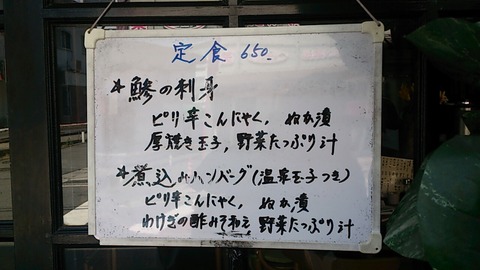 定食 650.
*鯵の刺身
ピリ辛こんにゃく, ぬか漬
厚焼き玉子, 野菜たっぷり汁
*煮込みハンバーグ(温菜玉子つき)
ピリ辛こんにゃく, ぬか漬
わけぎの酢みそ和え 野菜たっぷり汁